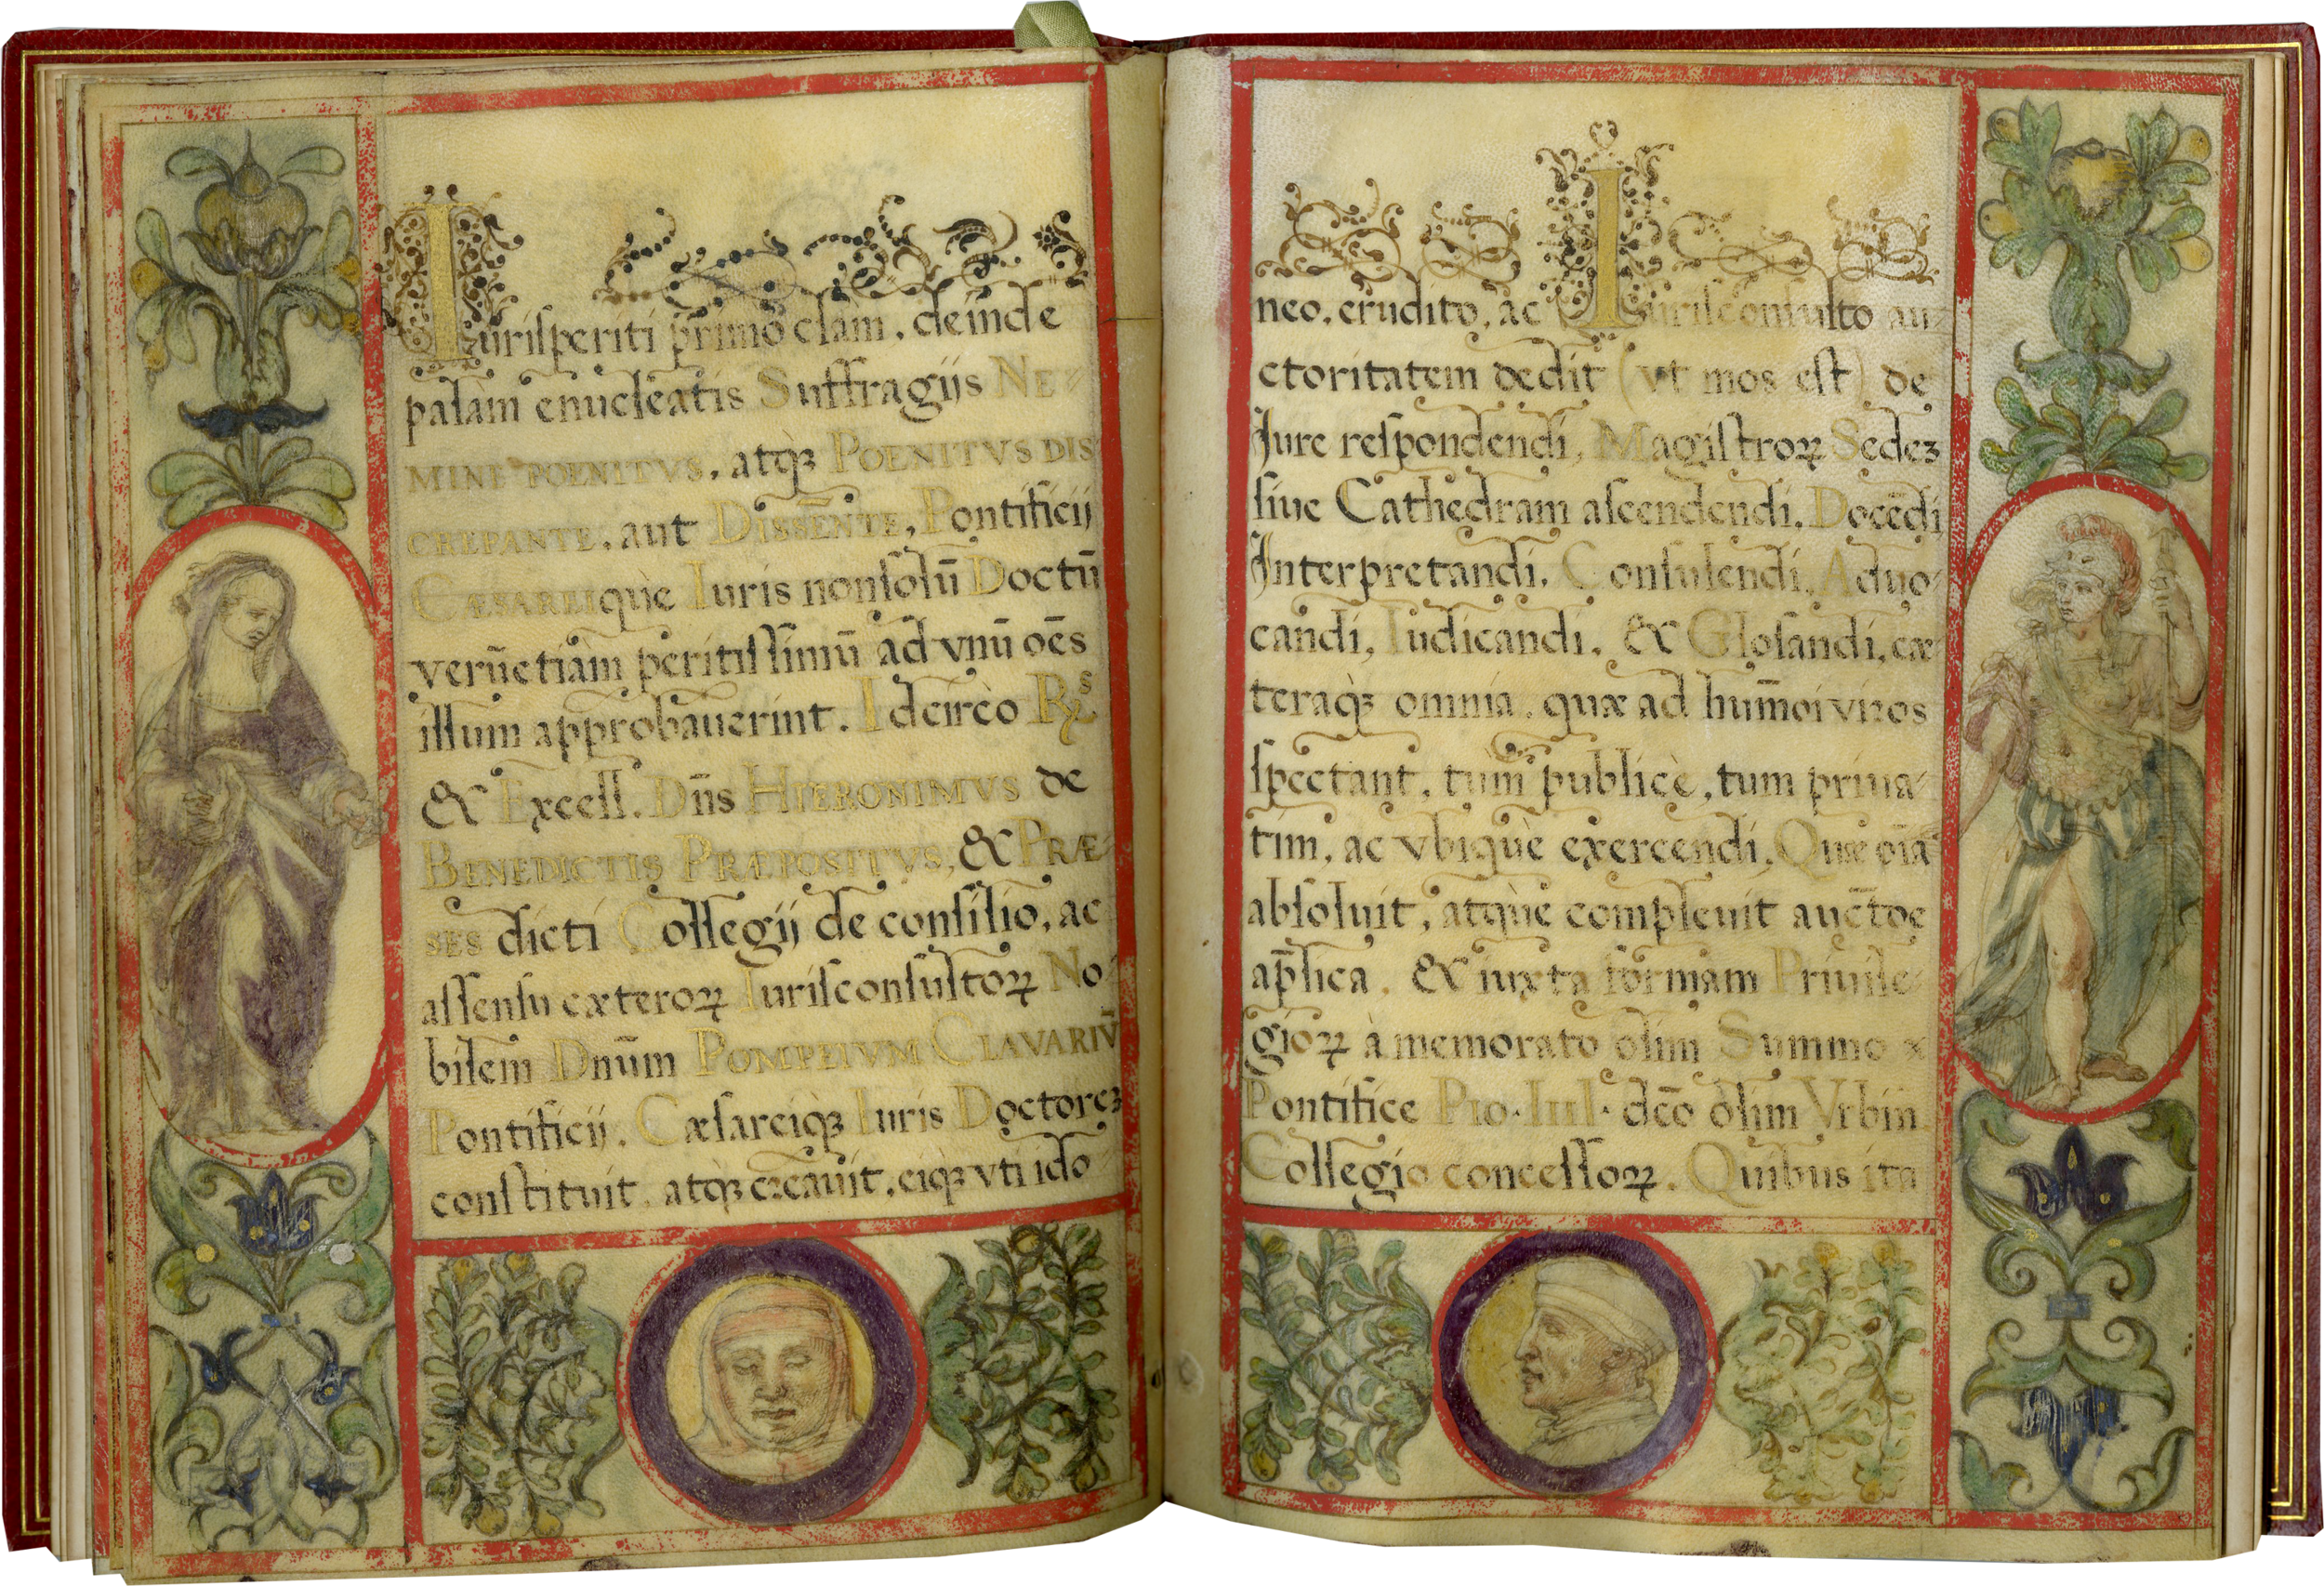 Iurisperiti primò clam, deinde
palam enucleatis Suffragijs NE-
MINE POENITVS, atq̀ꝫ POENITVS DIS
CREPANTE, aut DISSĒNTE, Pontificij
CÆSAREIIquè Iuris nonsolū Doctū
verūetiam peritissimū ad vnū oēs
illum approbauerint. Idcircò R.ˢ
& Excell. Dn̄s HIERONIMVS de
BENEDICTIS PRÆPOSITVS, & PRÆ-
SES dicti Collegij de consilio, ac
assensu cæteroꝝ Iurisconsultoꝝ No
bilem Dnūm POMPEIVM CLAVARIV̄
Pontificij, Cæsareiq̀ꝫ Iuris Doctoreꝫ
constituit, atq̀ꝫ creauit, eiq̀ꝫ vti ido-
neo, erudito, ac Iurisconsulto au-
ctoritatem dedit (vt mos est) de
Iure respondendi, Magistroꝝ Sedeꝫ
siue Cathedram ascendendi, Docēdi
Interpretandi, Consulendi, Aduo-
candi, Iudicandi, & Glosandi, cæ
teraq̀ꝫ omnia, quæ ad hum̄oi viros
spectant, tùm publicè, tum priua-
tim, ac vbiquè exercendi, Quæ oīa
absoluit, atquè compleuit auc̄toe
ap̄lica, & iuxta formam Priuile-
gioꝝ à memorato olim Summo
Pontifice PIO. IIII. dc̄o olim Vrbin.
Collegio concessoꝝ. Quibus ita